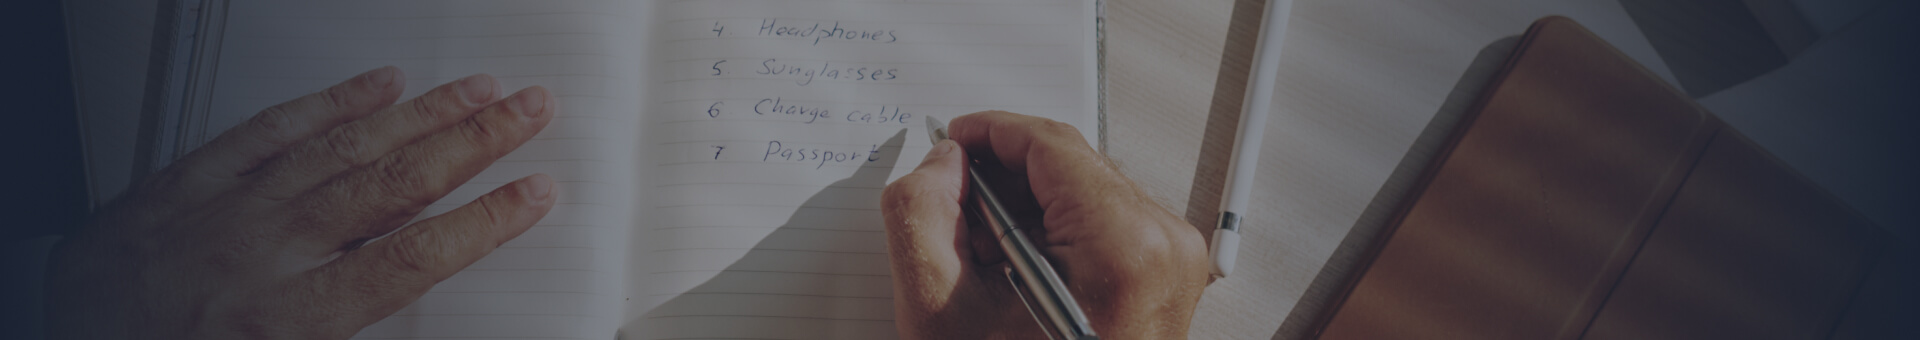 4. Headphones
5. Sunglasses
6 Charge cable
7 Passport